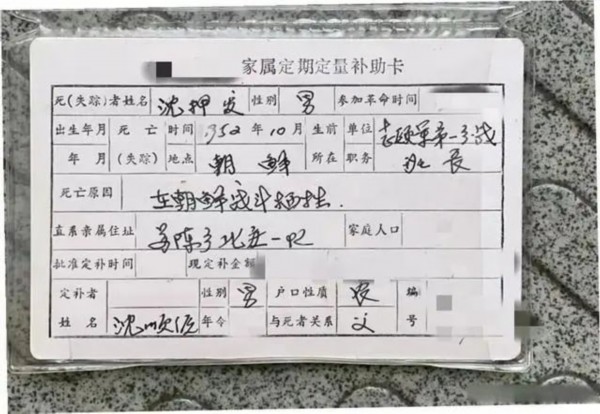 家属定期定量补助卡
死(失踪)者姓名 沈押发 性别 男 参加革命时间
出生年月 死亡 时间 1952年10月 生前 单位 志愿军第一
年 月 (失踪) 地点 朝鲜 所在 职务 班长
死亡原因 在朝鲜战斗牺牲.
直系亲属住址 家庭人口
批准定补时间 现定补金额
定补者 性别 男 户口性质 农 编
姓名 沈顺 年令 与死者关系 父 号